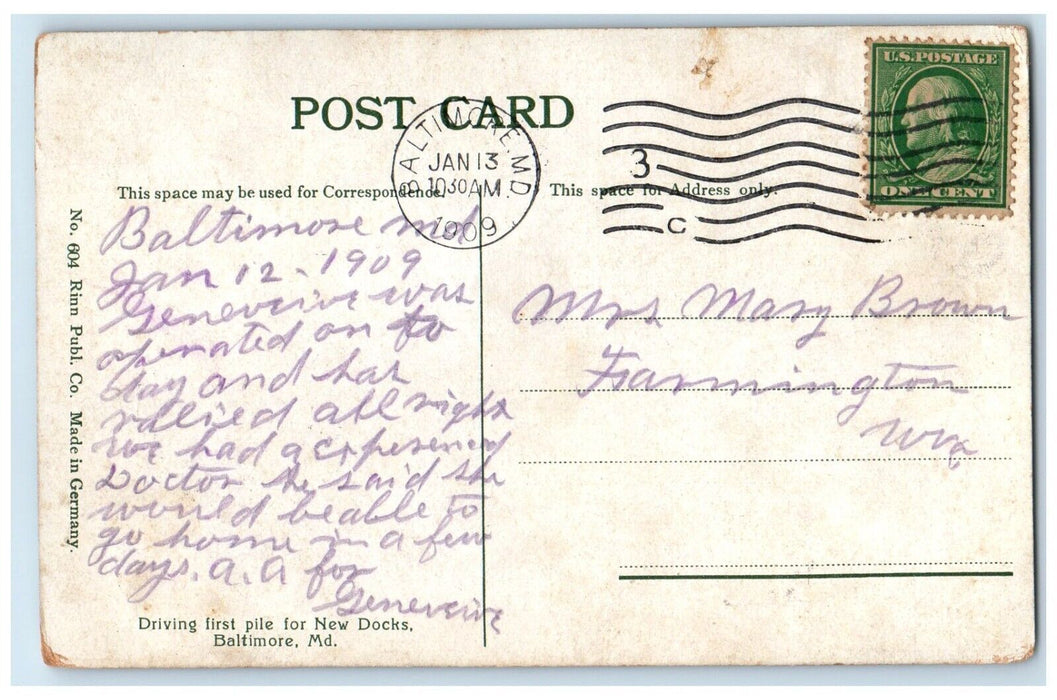 POST CARD
U.S. POSTAGE
ONE CENT
BALTIMORE, MD.
JAN 13
10 30 AM
1909
3
C
This space may be used for Correspondence.
This space for Address only.
Baltimore md
Jan 12 - 1909
Geneveive was
operated on to
day and has
rallied all right
we had a experened
Doctor he said she
would be able to
go home in a few
days. a. a for
Geneveive
Mrs Mary Brown
Farmington
Wva
No. 604 Rinn Publ. Co. Made in Germany.
Driving first pile for New Docks,
Baltimore, Md.